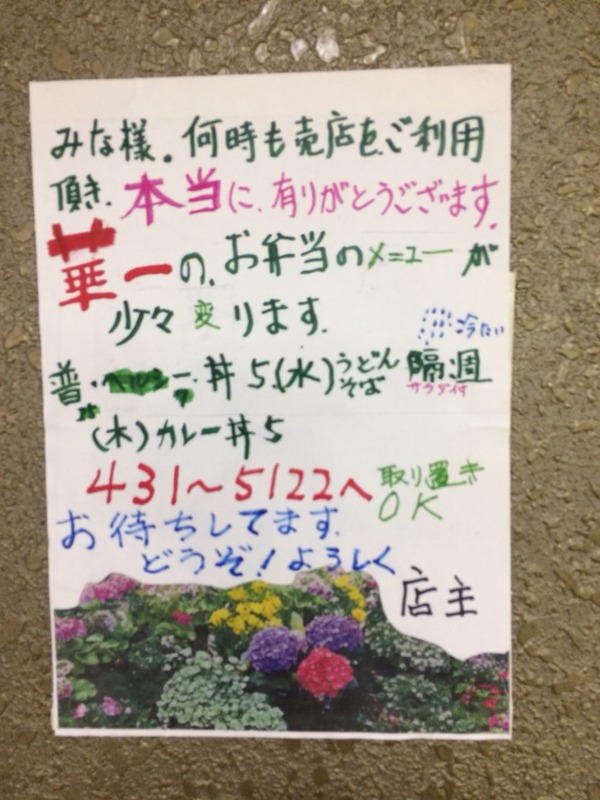 みな様。何時も売店をご利用
頂き、本当に、有りがとうございます。
華一の、お弁当のメニューが
少々変ります。
冷たい
普・ヘルシー・丼5、(水)うどんそば 隔週
サラダ付
(木)カレー丼5
431〜5122へ 取り置きOK
お待ちしてます。
どうぞ!よろしく
店主